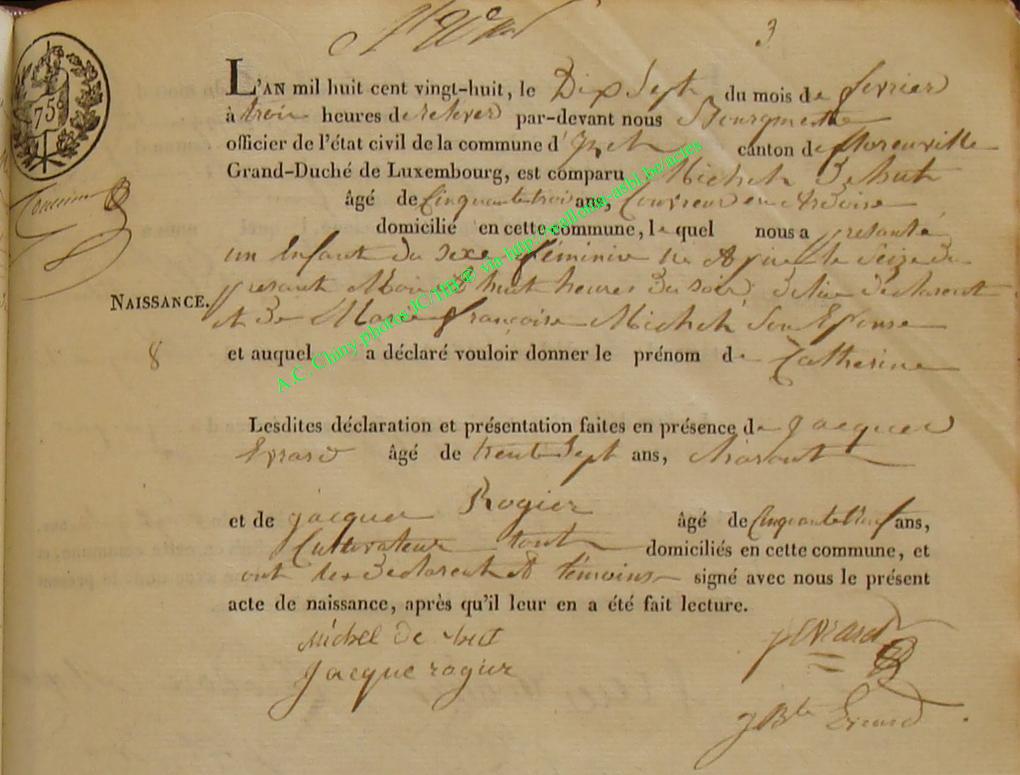 3
75c
L'AN mil huit cent vingt-huit, le Dix Sept du mois de fevrier
à trois heures de relevez par-devant nous Bourgmestre
officier de l'état civil de la commune d' Izel canton de florenville
Grand-Duché de Luxembourg, est comparu Michel Dehut
âgé de Cinquante trois ans, Couvreur en Ardoise
domicilié en cette commune, le quel nous a presanté
un Enfant du sexe féminin né A Izel le Seize du
presant Mois à huit heures du soir de lui declarant
NAISSANCE.
et de Marie françoise Michel son Epouse
8
et auquel a déclaré vouloir donner le prénom de Catherine
Lesdites déclaration et présentation faites en présence de jacques
Evrard âgé de trente Sept ans,
et de jacques Rogier âgé de Cinquante neuf ans,
Cultivateur tout domiciliés en cette commune, et
ont les declarent et témoins signé avec nous le présent
acte de naissance, après qu'il leur en a été fait lecture.
Michel de hut
jacque rogier
j Evrard
j Bte Evrard
A.C. Chiny-photos JC/HB © via http://wallonia-asbl.be/actes